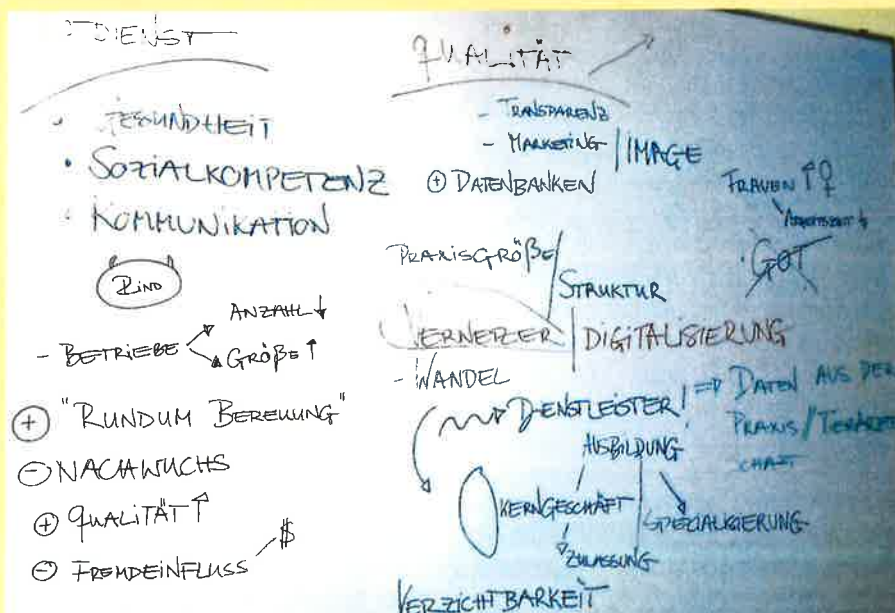 DIENST
• GESUNDHEIT
• SOZIALKOMPETENZ
• KOMMUNIKATION
RIND
- BETRIEBE
ANZAHL ↓
GRÖßE ↑
⊕ "RUNDUM BEREUUNG"
⊖ NACHWUCHS
⊕ QUALITÄT ↑
⊖ FREMDEINFLUSS $
QUALITÄT
- TRANSPARENZ
- MARKETING / IMAGE
⊕ DATENBANKEN
FRAUEN ↑ ♀
ARBEITSZEIT ↓
• GOT
PRAXISGRÖßE / STRUKTUR
VERNETZER / DIGITALISIERUNG
- WANDEL
DIENSTLEISTER! ⇒ DATEN AUS DER
PRAXIS /
AUSBILDUNG
KERNGESCHÄFT
SPEZIALISIERUNG
ZULASSUNG
VERZICHTBARKEIT